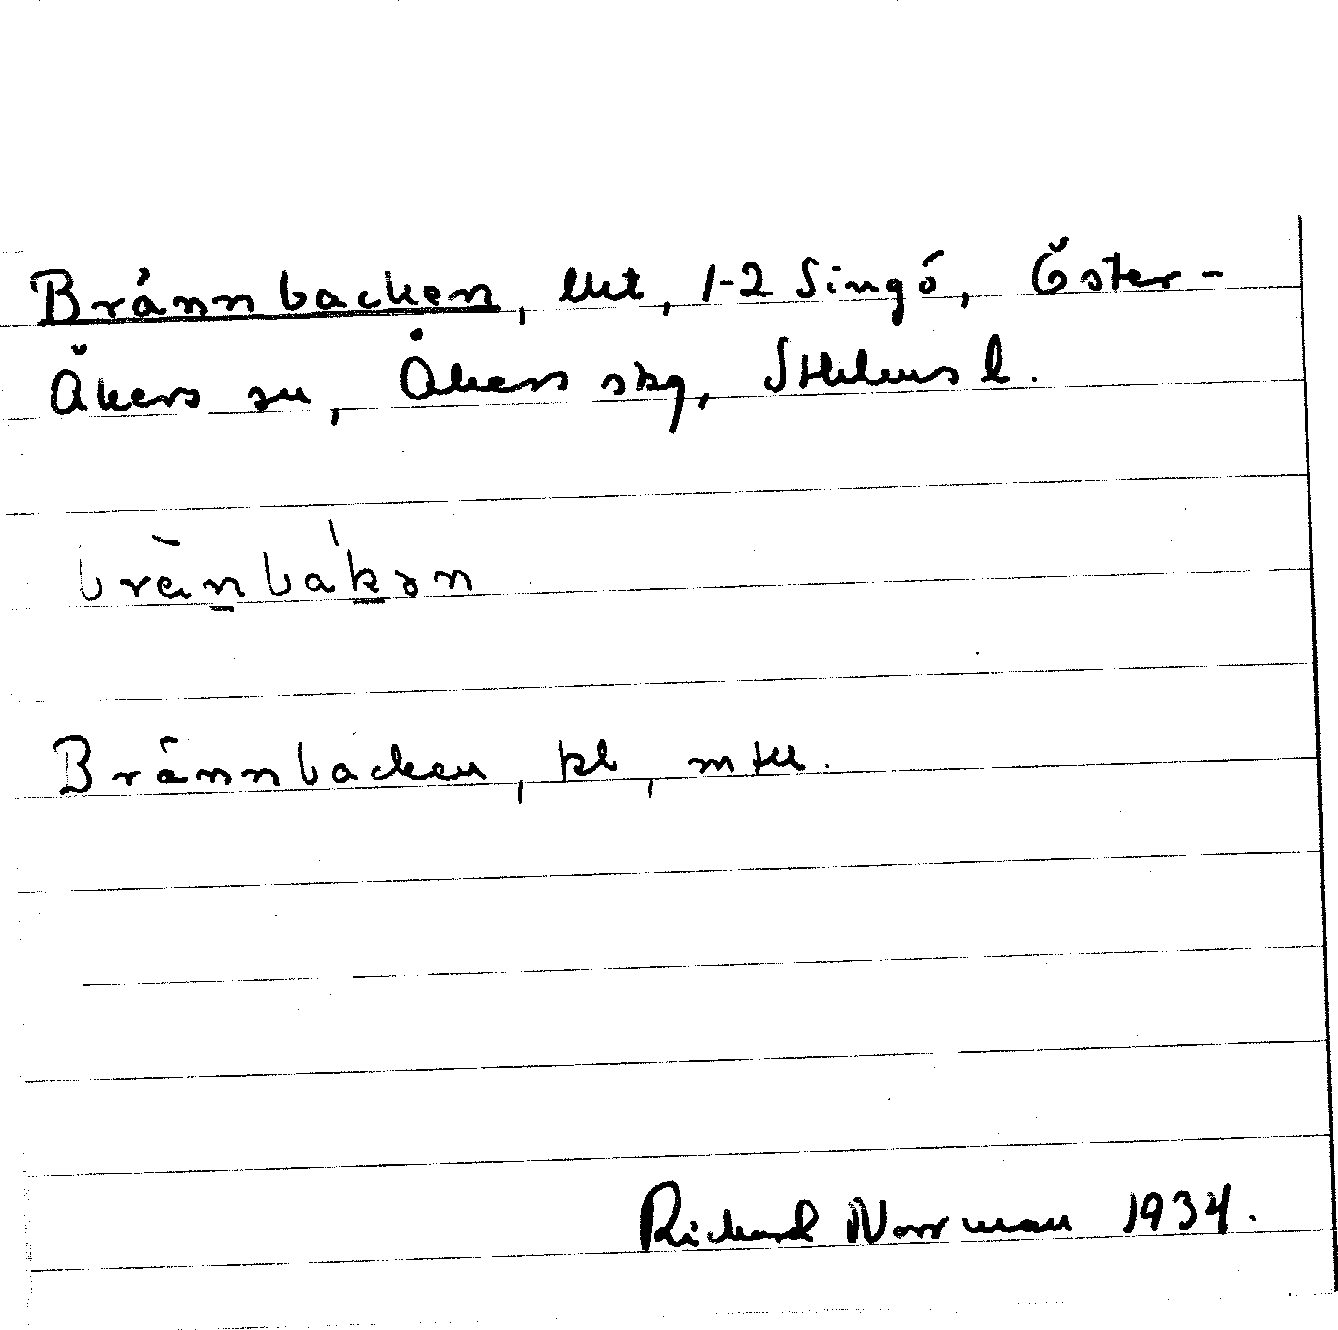 Brännbacken, lkt, 1-2 Singö, Öster-
Åkers sn, Åkers skg, Sthlms l.
brän̲bak̲ən
Brännbacken, kl, mtll.
Richard Norrman 1934.